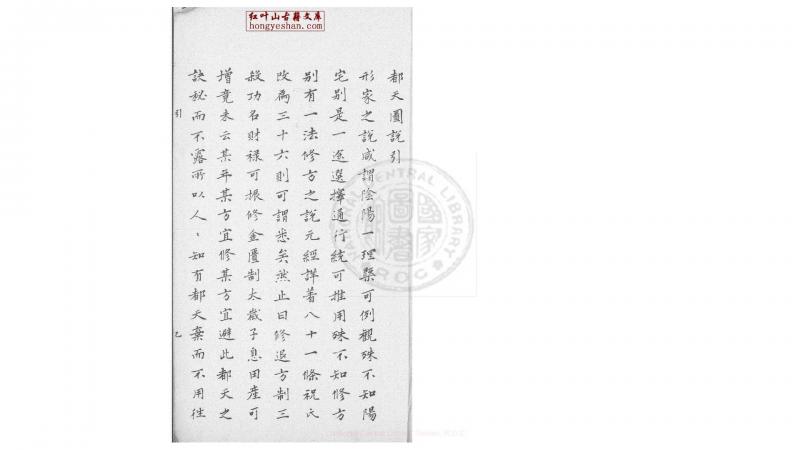 红叶山古籍文库
hongyeshan.com
都天圖說引
形家之說咸謂陰陽一理槩可例觀殊不知陽
宅别是一途選擇通行統可推用殊不知修方
别有一法修方之說元經詳著八十一條祝氏
改為三十六則可謂悉矣然止曰修退方制三
殺功名財祿可振修金匱制太歲子息田產可
增竟未云某年某方宜修某方宜避此都天之
訣秘而不露所以人〻知有都天棄而不用徃
引
乙
國家圖書
CENTRAL LIBRARY
ROC